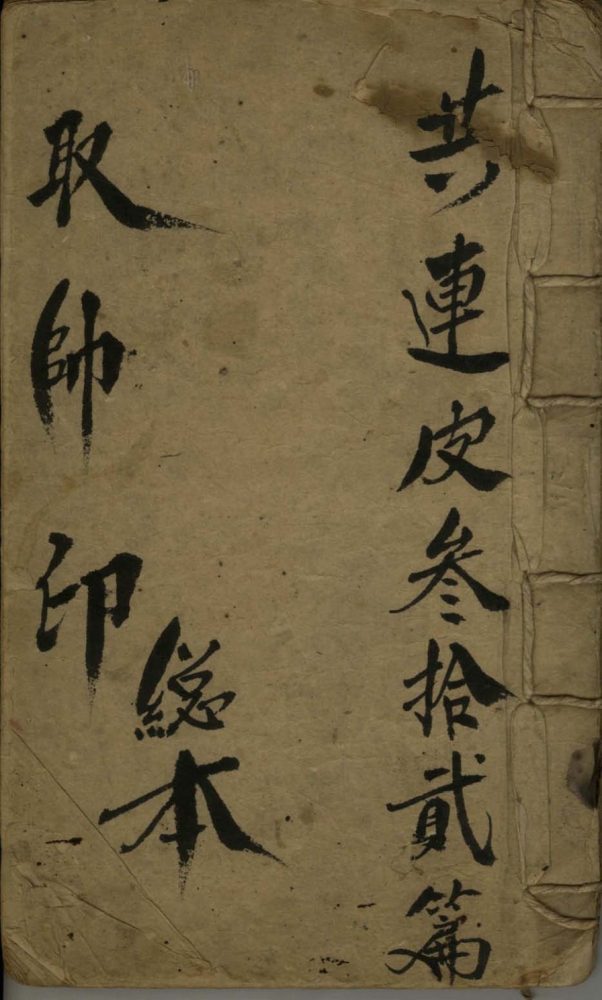 共連皮叁拾貳篇
取帥印
總本